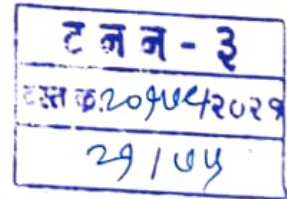 ट न न - ३
दस्त क्र.२०१७५/२०२१
२१ / ७५